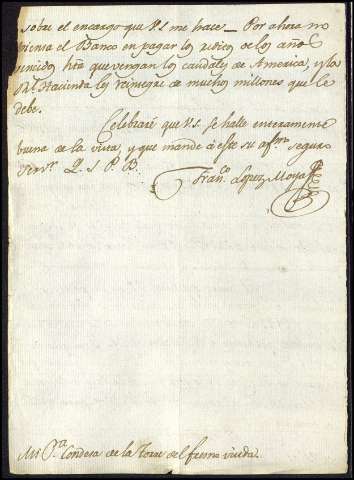 sobre el encargo que V.S. me hace_ Por ahora no
piensa el Banco en pagar los reditos de los años
vencidos hta que vengan los caudales de America, y la
Rl. Hacienda los reintegre de muchos millones que le
debe.
Celebraré que V.S. se halle enteramente
buena de la vista, y que mande á este su afmo. seguro
Servr. Q. S. P. B.
Franco. Lopez Moya
Mi Sra. Condesa de la Torre del fresno viuda.